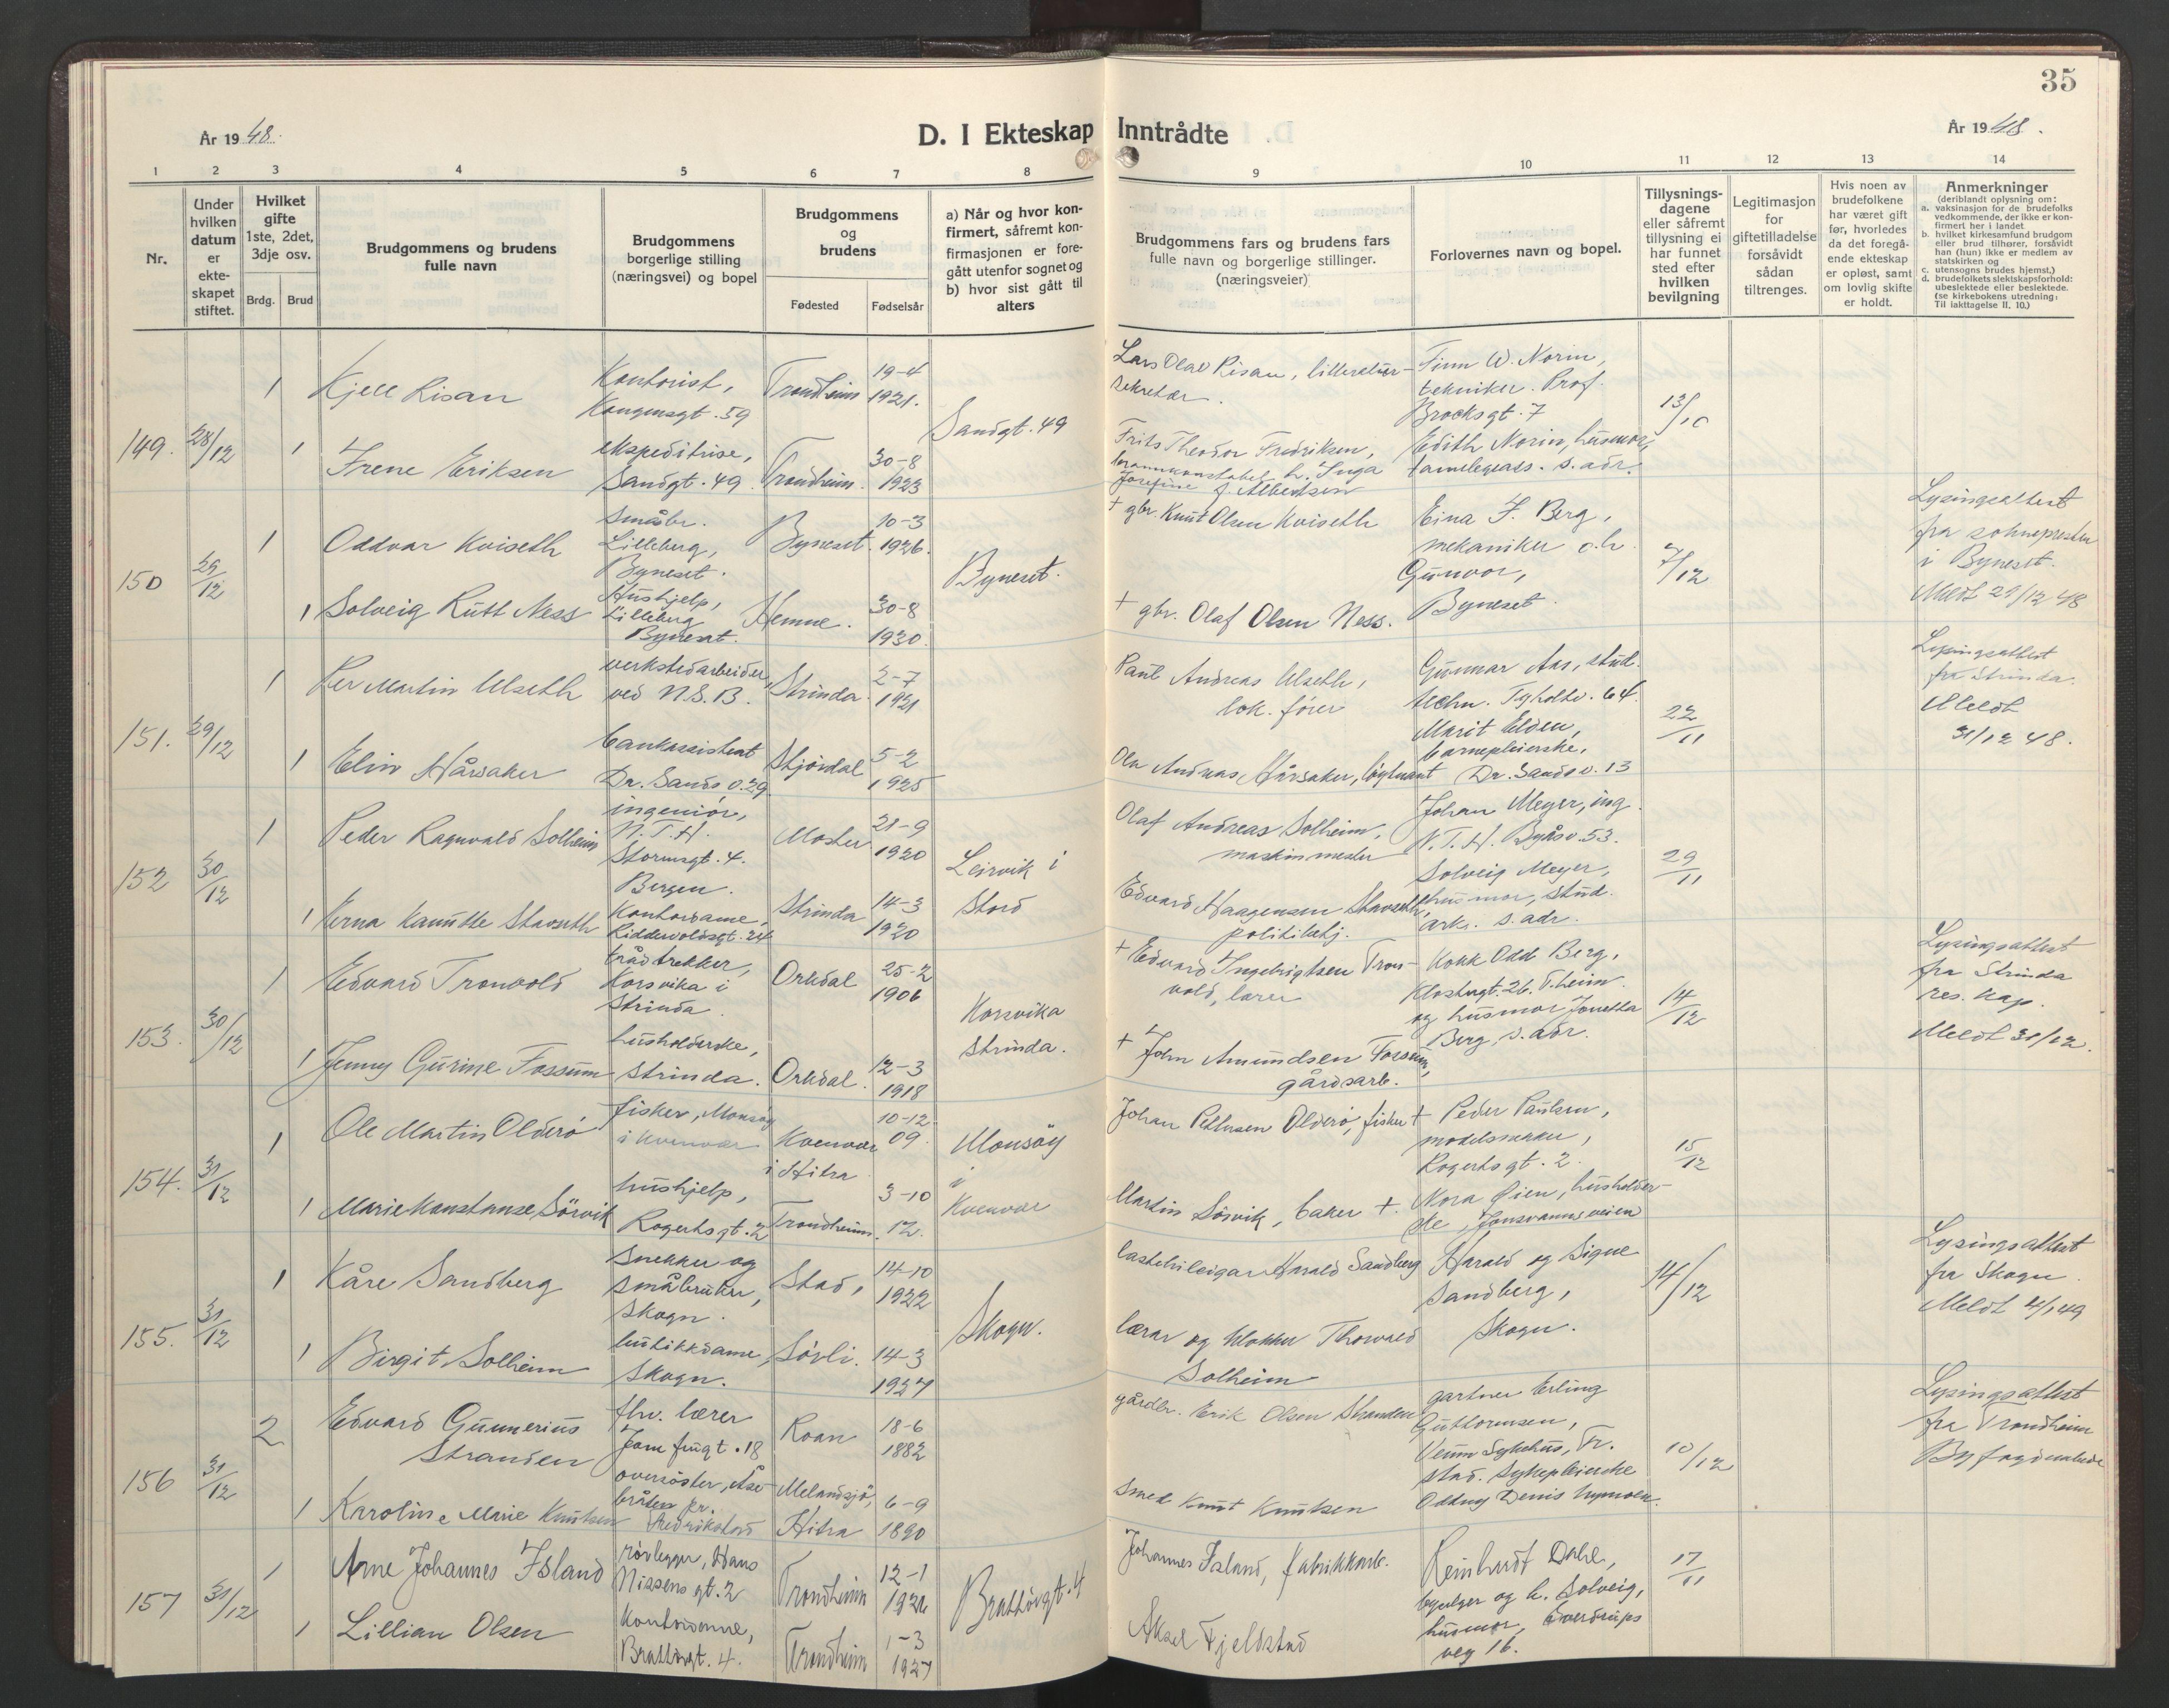 35
År 1948.
D. I Ekteskap Inntrådte
År 1948.
1 2 3 4 5 6 7 8 9 10 11 12 13 14
Nr.
Under hvilken datum er ekte-skapet stiftet.
Hvilket gifte 1ste, 2det, 3dje osv.
Brdg. Brud
Brudgommens og brudens fulle navn
Brudgommens borgerlige stilling (næringsvei) og bopel
Brudgommens og brudens
Fødested Fødselsår
a) Når og hvor kon-firmert, såfremt kon-firmasjonen er fore-gått utenfor sognet og b) hvor sist gått til alters
Brudgommens fars og brudens fars fulle navn og borgerlige stillinger. (næringsveier)
Forlovernes navn og bopel.
Tillysnings-dagene eller såfremt tillysning ei har funnet sted efter hvilken bevilgning
Legitimasjon for giftetilladelse forsåvidt sådan tiltrenges.
Hvis noen av brudefolkene har været gift før, hvorledes da det foregå-ende ekteskap er opløst, samt om lovlig skifte er holdt.
Anmerkninger
(deriblandt oplysning om:
a. vaksinasjon for de brudefolks vedkommende, der ikke er kon-firmert her i landet
b. hvilket kirkesamfund brudgom eller brud tilhører, forsåvidt han (hun) ikke er medlem av statskirken og
c. utensogns brudes hjemst.)
d. brudefolkets slektskapsforhold: ubeslektede eller beslektede. (se kirkebokens utredning: Til iakttagelse II. 10.)
149. 28/12
1 Kjell Risan
Kontorist, Kongensgt. 59
Trondheim 19-4 1921.
Lars Olav Risan, litteratur-sekretær.
Finn W. Norin, tekniker. Prof. Brocksgt. 7
13/10
1 Irene Eriksen
ekspeditrise, Sandgt. 49
Trondheim. 30-8 1923
Sandgt. 49
Frits Theodor Fredriksen, brannkonstabel, h. Inga Josefine f. Albertsen
Edith Norin, husmor, s. adr.
150 29/12
1 Oddvar Kviseth
Småbr. Lilleberg, Byneset.
Byneset. 10-3 1926.
Byneset.
+ gbr. Knut Olsen Kviseth
Eina F. Berg, mekaniker o.h. Gunvor, Byneset.
7/12
Lysingsattest fra sokneprestn i Byneset. Meldt 29/12 48
1 Solveig Rutt Ness
Hushjelp, Lilleberg Byneset.
Hemne. 30-8 1930.
+ gbr. Olaf Olsen Ness.
151. 29/12
1 Per Martin Ulseth
verkstedarbeider ved N.S.B.
Strinda. 2-7 1921
Paul Andreas Ulseth, lok. fører
Gunnar Aas, stud. techn. Tyholtv. 64.
Marit Elden, barnepleierske, Dr. Sands v. 13
22/11
Lysingsattest fra Strinda. Meldt 31/12 48.
1 Elin Hårsaker
bankassistent Dr. Sands v. 29
Stjørdal 5-2 1925
Ole Andreas Hårsaker, løytnant
152 30/12
1 Peder Ragnvald Solheim
ingeniør, N.T.H. Stormsgt. 4. Bergen.
Moster 21-9 1920
Leirvik i Stord
Olaf Andreas Solheim, maskinmester
Johan Meyer, ing. N.T.H. Byåsv. 53.
Solveig Meyer, husmor, stud. ark. s. adr.
29/11
1 Erna Kamille Stavseth
Kontordame, Riddervoldsgt. 24
Strinda 14-3 1920
Edvard Haagensen Stavseth, politibetj.
153. 30/12
1 Edvard Tronvold
trådtrekker, Korsvika i Strinda.
Orkdal 25-2 1906
Korsvika Strinda.
+ Edvard Ingebrigtsen Tron-vold, lærer
Kokk Odd Berg, Klostergt. 26. T.heim. og husmor Jonetta Berg, s. adr.
14/12
Lysingsattest fra Strinda res. kap. Meldt 31/12.
1 Jenny Gurine Fossum
husholderske, Strinda.
Orkdal. 12-3 1918
+ John Amundsen Fossum, gårdsarb.
154. 31/12
1 Ole Martin Olderø
fisker, Monsøy i Kvenvær
Kvenvær i Hitra 10-12 09.
Monsøy i Kvenvær
Johan Petersen Olderø, fisker +
Peder Paulsen, modelsnekker, Rogertsgt. 2.
15/12
1 Marie Konstanse Sørvik
hushjelp, Rogertsgt. 2
Trondheim. 3-10 12.
Martin Sørvik, baker +.
Nora Øien, husholder-ske, Jonsvannsveien
155. 31/12
1 Kåre Sandberg
Snekker og småbruker, Skogn.
Stod, 14-10 1922
Skogn.
lastebileigar Harald Sandberg
Harald og Signe Sandberg, Skogn.
14/12
Lysingsattest fra Skogn. Meldt 4/1 49
1 Birgit Solheim
butikkdame, Skogn.
Sørli. 14-3 1927
lærar og klokker Thorvald Solheim
156 31/12
2 Edvard Gunnerius Stranden
fhv. lærer Jomfrugt. 18
Roan 18-6 1882
gårdbr. Erik Olsen Stranden
gartner Erling Guttormsen, Veum Sykehus, Fr. stad. Sykepleierske Oddny Denis Nymoen.
10/12
Lysingsattest fra Trondheim Byfogdembede
1 Karoline Marie Knutsen
oversøster, Åse-bråten pr. Fredrikstad
Melandsjø, Hitra 6-9 1890
Smed Knut Knutsen
157 31/12
1 Arne Johannes Island
rørlegger, Hans Nissens gt. 2
Trondheim 12-1 1926
Brattørgt. 4
Johannes Island, fabrikkarb.
Reinhardt Dahl, og h. Solveig, husmor, Everdrups veg 16.
17/11
1 Lillian Olsen
Kontordame, Brattørgt. 4.
Trondheim 1-3 1927
Aksel Fjeldstad